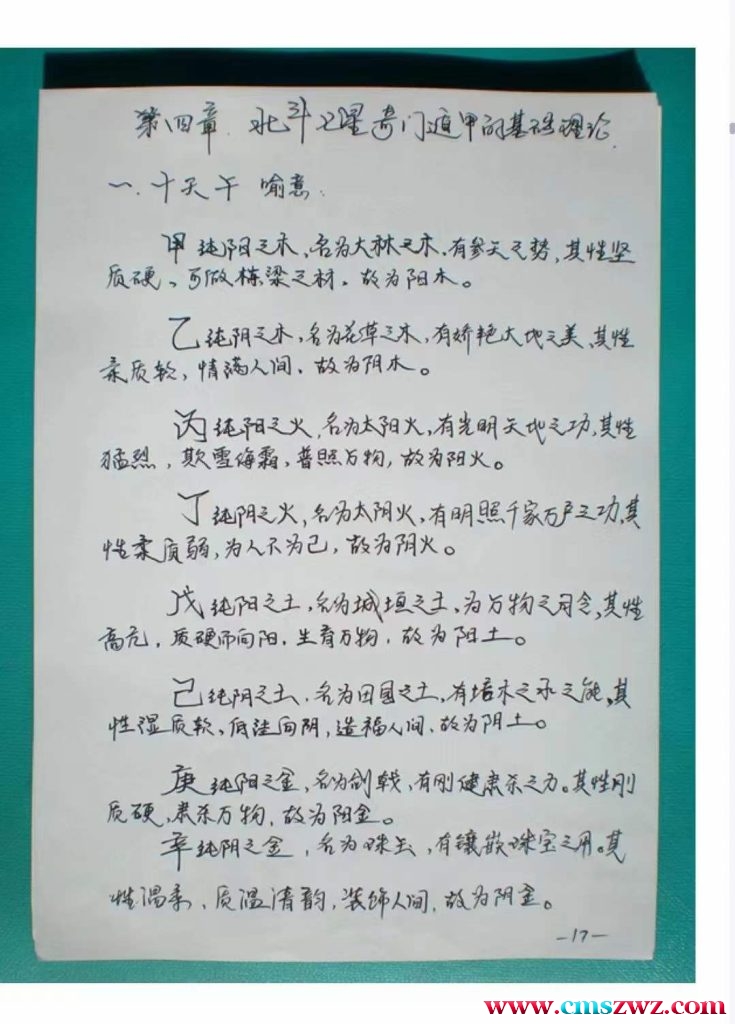 第四章、北斗七星奇门遁甲的基础理论
一、十天干 喻意:
甲纯阳之木,名为大林之木,有参天之势,其性坚
质硬、可做栋梁之材、故为阳木。
乙纯阴之木,名为花草之木,有娇艳大地之美、其性
柔质软,情满人间、故为阴木。
丙纯阳之火,名为太阳火,有光明天地之功,其性
猛烈,欺雪侮霜,普照万物,故为阳火。
丁纯阴之火,名为太阴火,有明照千家万户之功,其
性柔质弱,为人不为己,故为阴火。
戊纯阳之土,名为城垣之土,为万物之司令,其性
高亢,质硬而向阳,生育万物,故为阳土。
己纯阴之土、名为田园之土,有培木之水之能,其
性湿质软,低洼向阴,造福人间、故为阴土。
庚纯阳之金,名为剑戟,有刚健肃杀之力。其性刚
质硬,肃杀万物,故为阳金。
辛纯阴之金,名为珠玉,有镶嵌珠宝之用。其
性温柔、质温清韵,装饰人间,故为阴金。
-17-
www.cmszwz.com